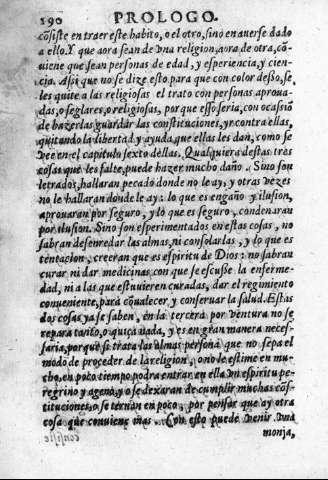 190 PROLOGO.
cõsiste en traer este habito, o el otro, sino en auerse dado
a ello. Y que aora sean de vna religion, aora de otra, cõ
uiene que sean personas de edad, y esperiencia, y cien-
cia. Assi que no se dize esto para que con color desso, se
les quite a las religiosas el trato con personas aproua-
das, o seglares, o religiosas, porque esso seria, con ocasiõ
de hazerlas guardar las constituciones, yr contra ellas,
quitando la libertad, y ayuda, que ellas les dan, como se
vee en el capitulo sexto dellas. Qualquiera destas tres
cosas que les falte, puede hazer mucho daño. Sino son
letrados, hallaran pecado donde no le ay, y otras vezes
no le hallaran donde le ay: lo que es engaño y ilusion,
aprouaran por seguro, y lo que es seguro, condenaran
por ilusion. Sino son esperimentados en estas cosas, no
sabran desenredar las almas, ni consolarlas, y lo que es
tentacion, creeran que es espiritu de Dios: no sabran
curar ni dar medicinas con que se escuse la enferme-
dad, ni a las que estuuieren curadas, dar el regimiento
conueniente, para cõualecer, y conseruar la salud. Estas
dos cosas ya se saben, en la tercera por ventura no se
repara tanto, o quiça nada, y es en gran manera neces-
saria, porque si trata las almas persona que no sepa el
modo de proceder de la religion, o no le estime en mu-
cho, en poco tiempo podra entrar en ella vn espiritu pe-
regrino y ageno, y o se dexaran de cumplir muchas cõs-
tituciones, o se ternan en poco, por pensar que ay otra
cosa que conuiene mas. Con esto puede venir vna
monja,